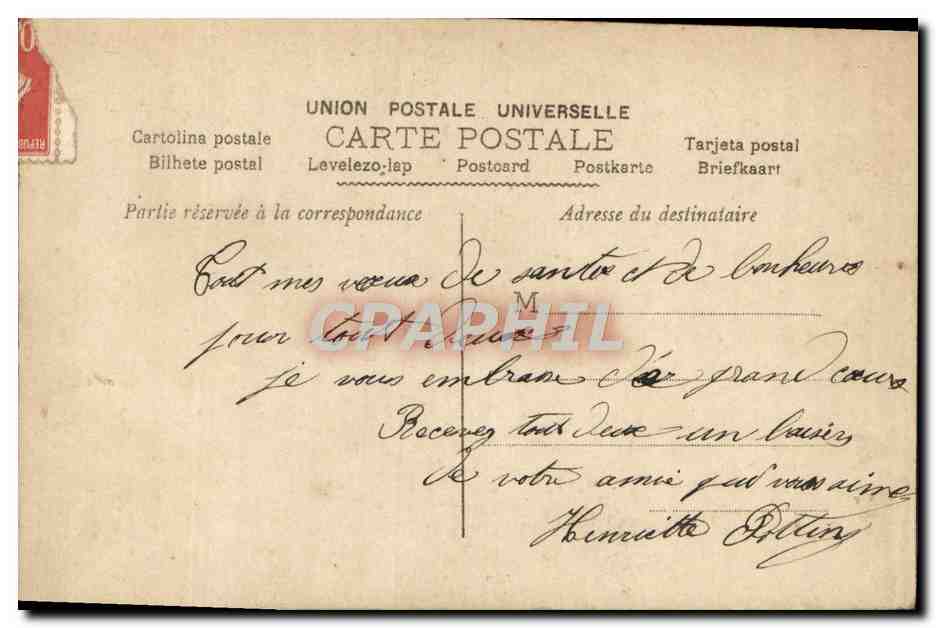 0
REPUB
UNION POSTALE UNIVERSELLE
CARTE POSTALE
Cartolina postale
Tarjeta postal
Bilhete postal
Levelezo-lap
Postcard
Postkarte
Briefkaart
Partie réservée à la correspondance
Adresse du destinataire
M
Tout mes vœux de santée et de bonheures
pour tout deux
je vous embrasse de grand cœur
Recevez tout deux un baisers
de votre amie qui vous aime
Henriette
CPAPHIL